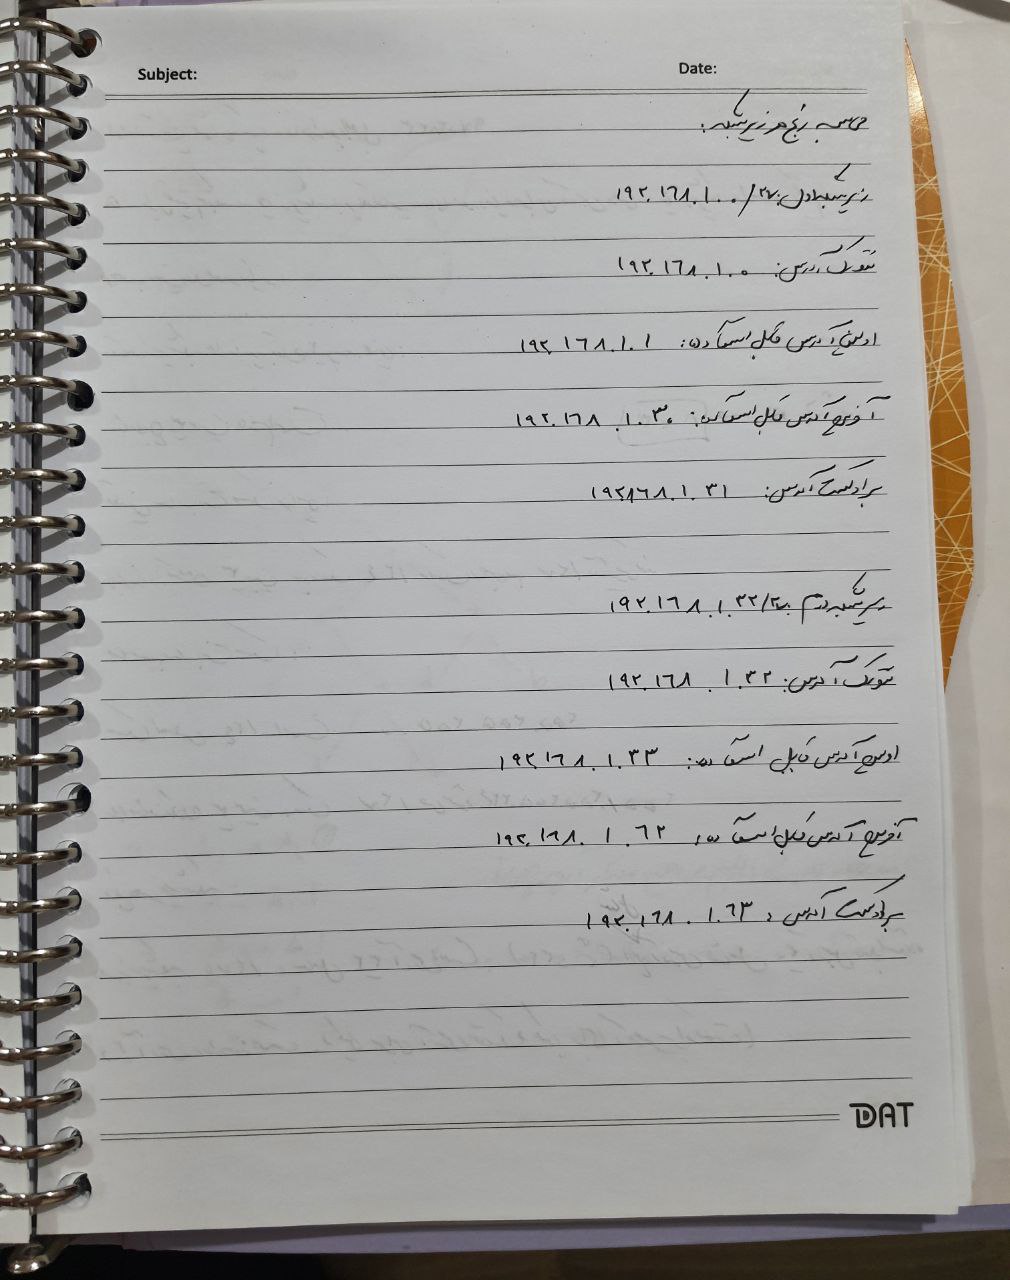 Subject:
Date:
محاسبه رنج هر زیر شبکه:
زیر شبکه اول: ۱۹۲.۱۶۸.۱.۰/۲۷
نتورک آدرس: ۱۹۲.۱۶۸.۱.۰
اولین آدرس قابل استفاده: ۱۹۲.۱۶۸.۱.۱
آخرین آدرس قابل استفاده: ۱۹۲.۱۶۸.۱.۳۰
برادکست آدرس: ۱۹۲.۱۶۸.۱.۳۱
زیر شبکه دوم ۱۹۲.۱۶۸.۱.۳۲/۲۷
نتورک آدرس: ۱۹۲.۱۶۸.۱.۳۲
اولین آدرس قابل استفاده: ۱۹۲.۱۶۸.۱.۳۳
آخرین آدرس قابل استفاده: ۱۹۲.۱۶۸.۱.۶۲
برادکست آدرس: ۱۹۲.۱۶۸.۱.۶۳
DAT